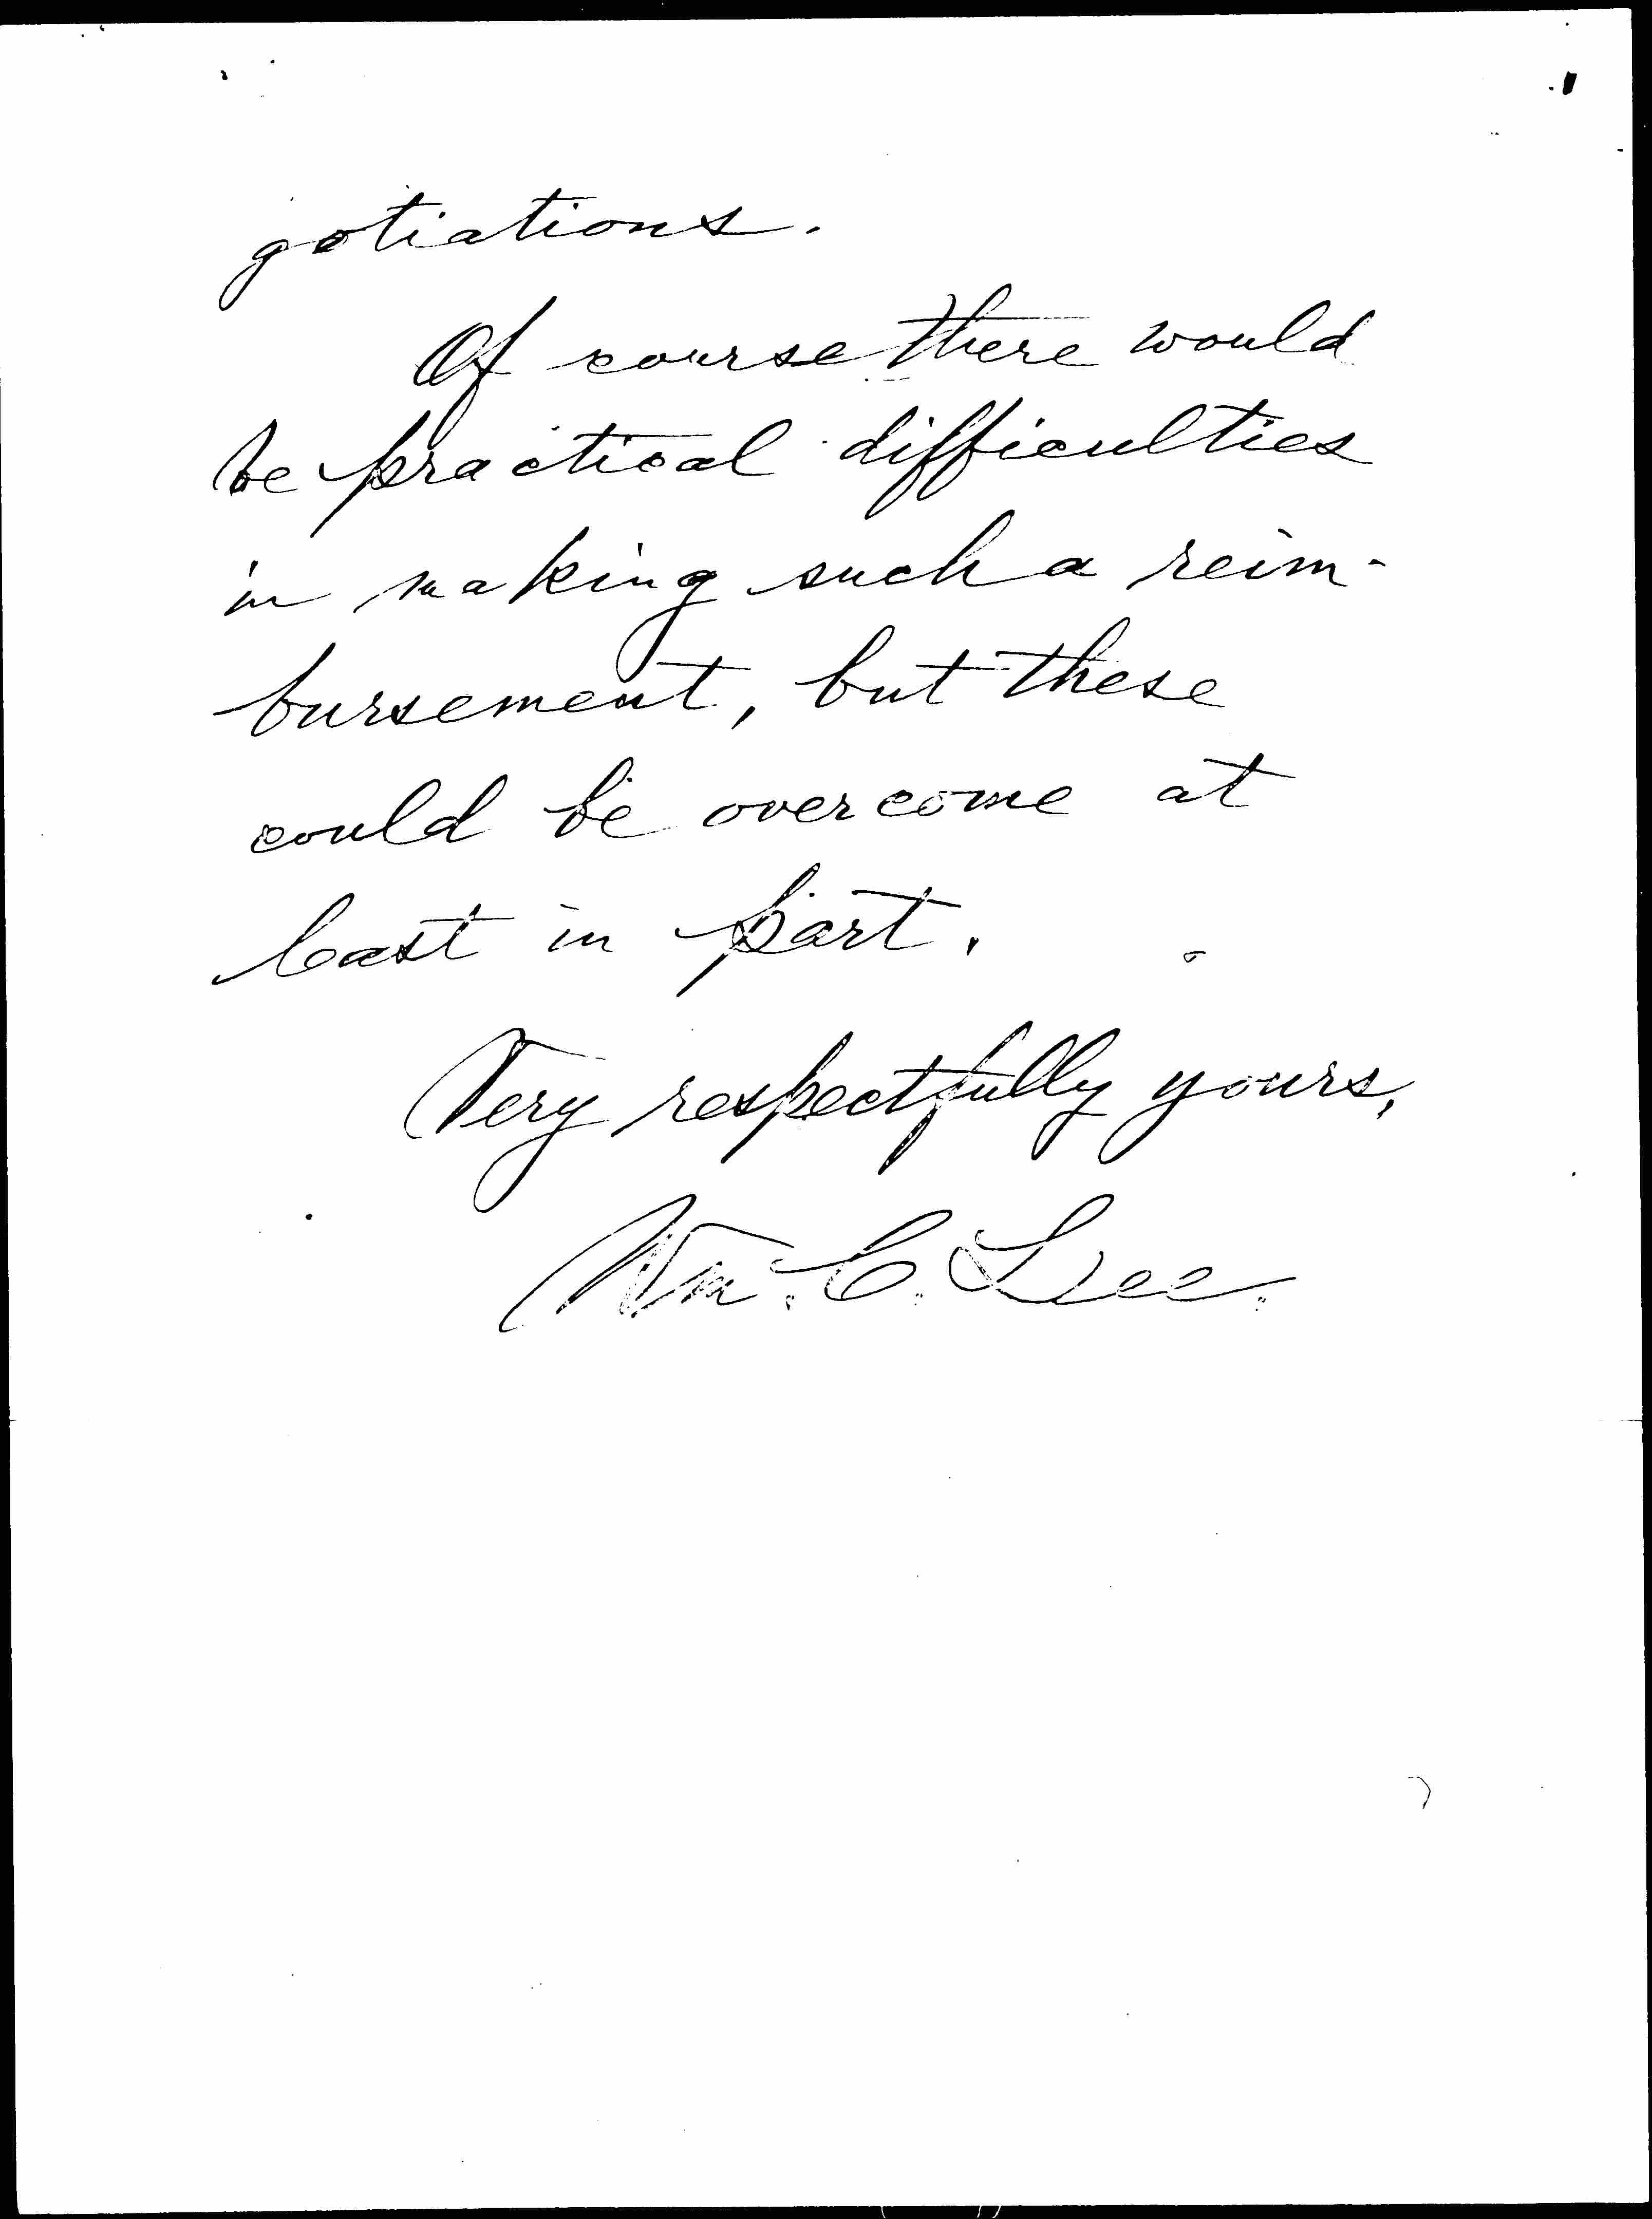 gotiations.
Of course there would
be practical difficulties
in making such a reim-
bursement, but these
could be overcome at
least in part.
Very respectfully yours,
Wm. C. Lee.